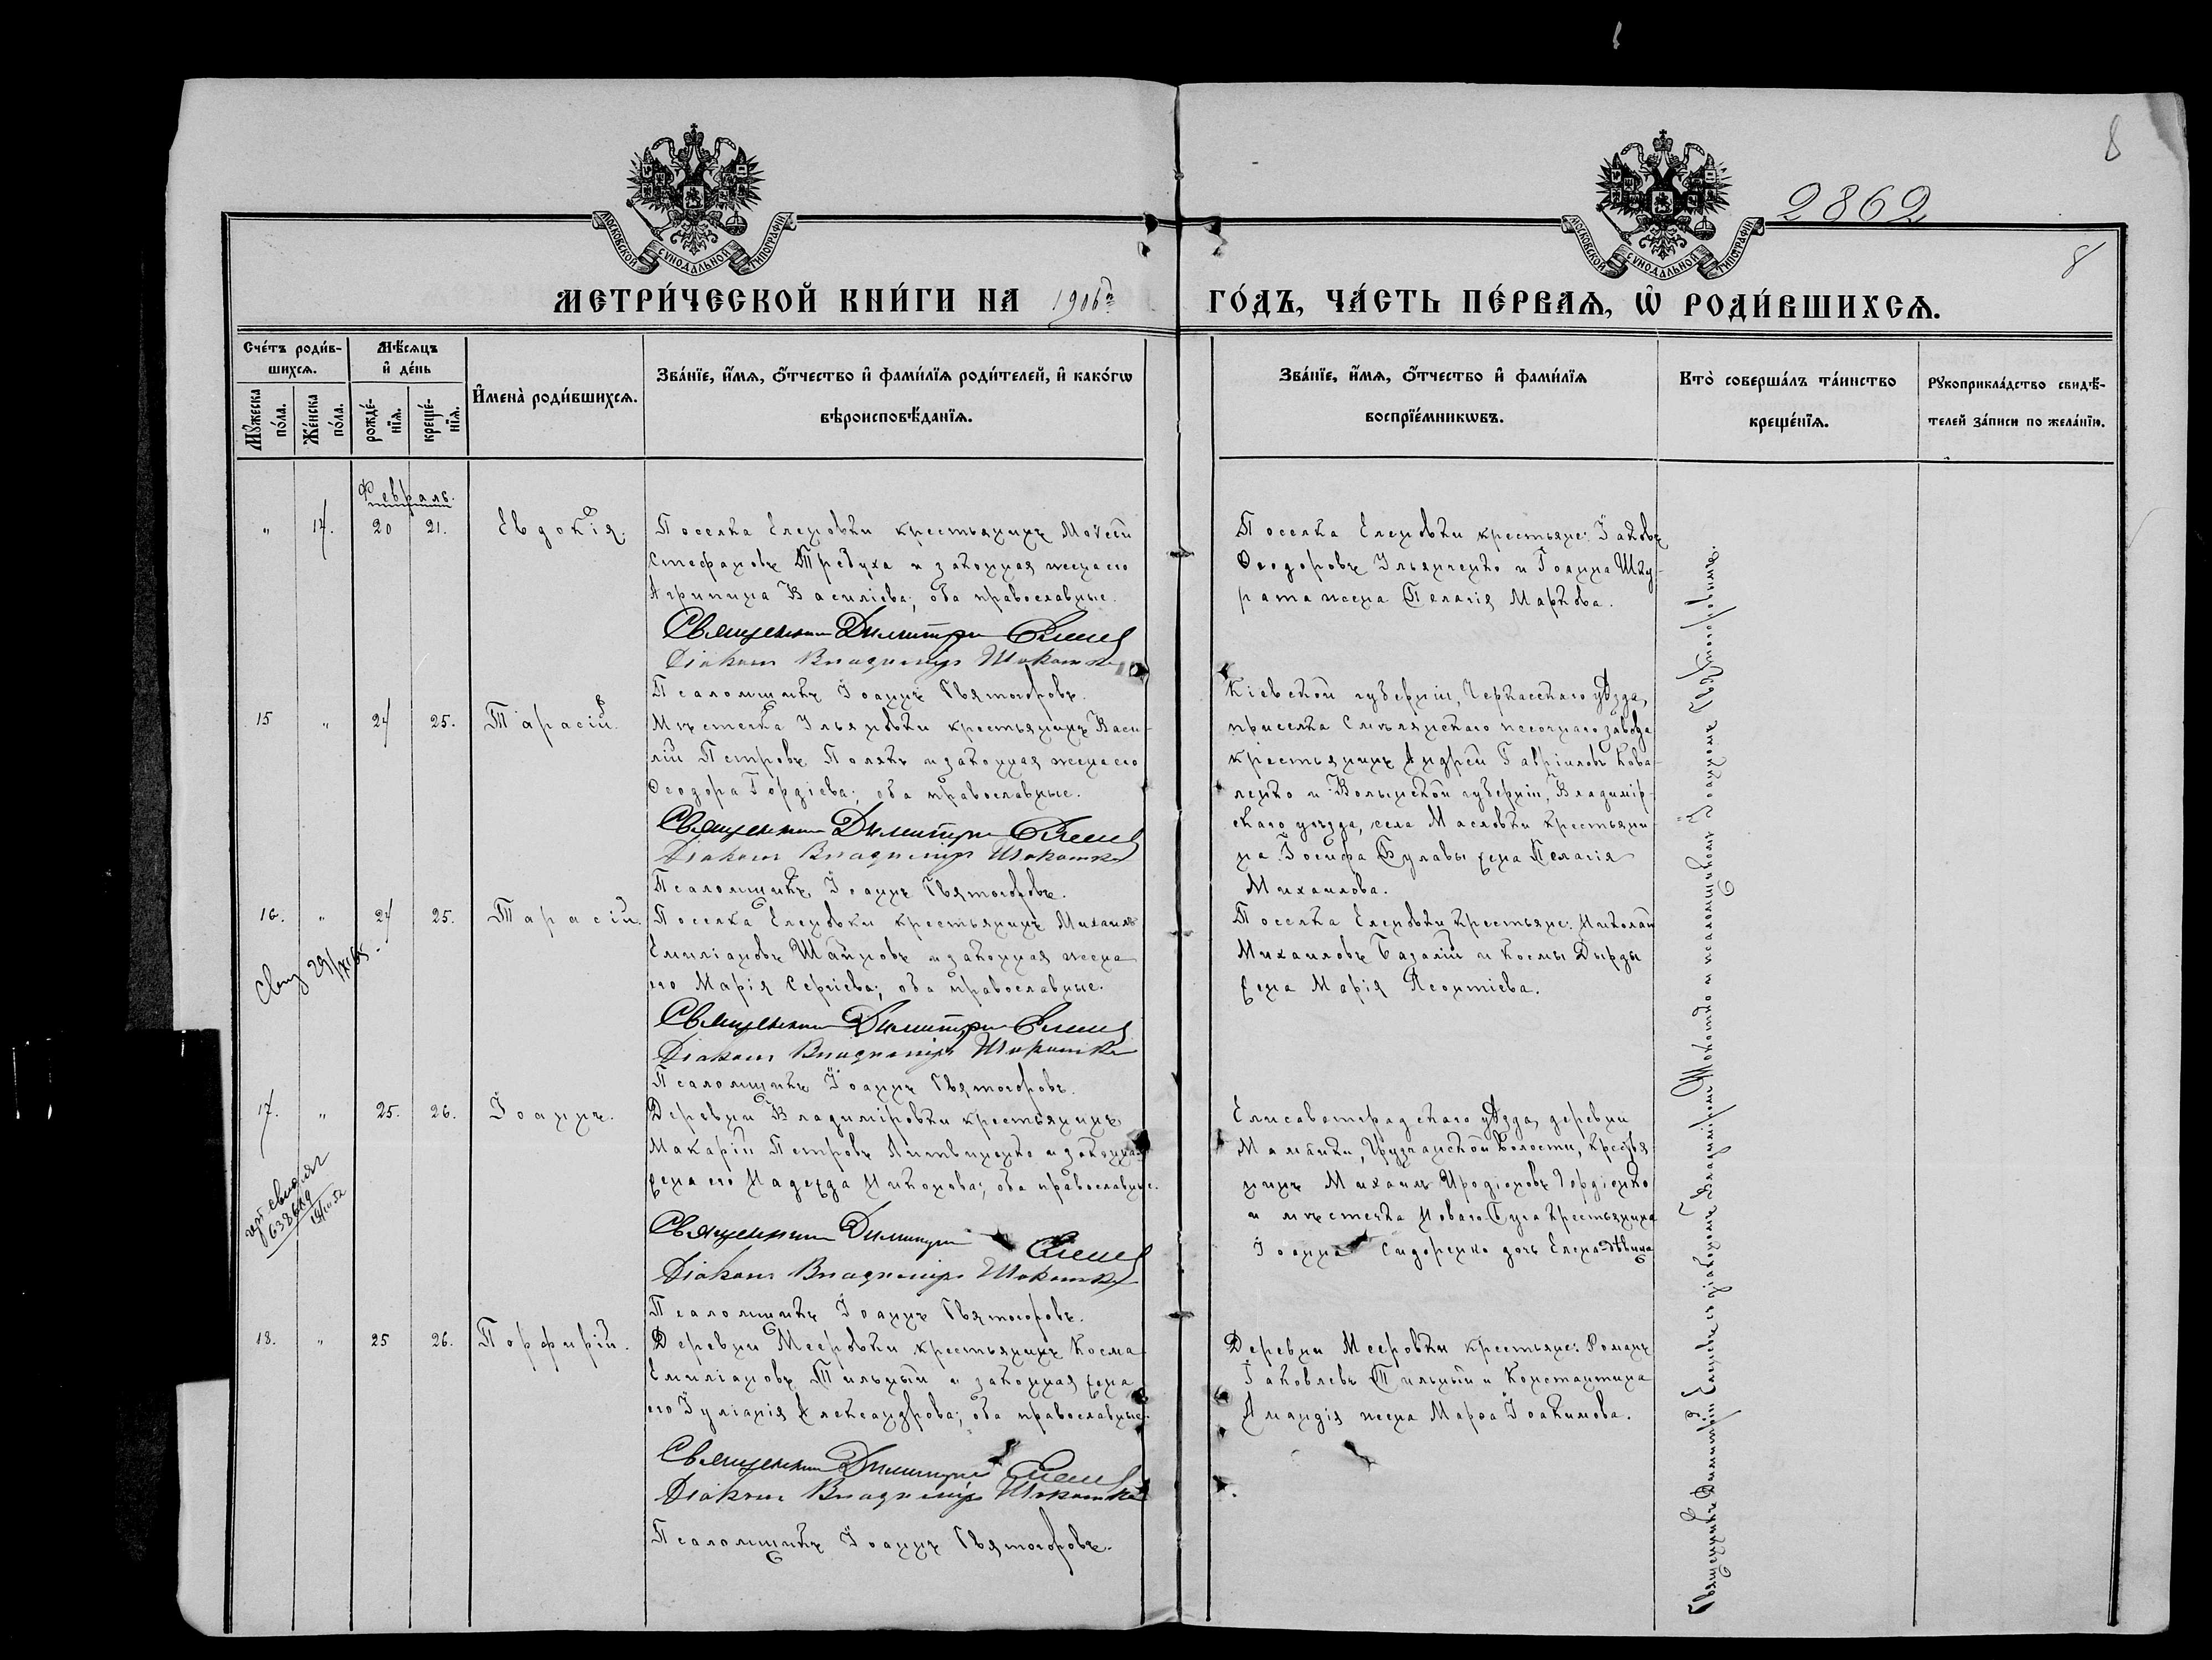 8
2862
8
МОСКОВСКОЙ СѴНОДАЛЬНОЙ ТИПОГРАФІИ
МОСКОВСКОЙ СѴНОДАЛЬНОЙ ТИПОГРАФІИ
МЕТРИ́ЧЕСКОЙ КНИ́ГИ НА 1906й ГО́ДЪ, ЧА́СТЬ ПЕ́РВАѦ, Ѽ РОДИ́ВШИХСѦ.
Сче́тъ роди́в-
шихсѧ.
Мꙋ́жеска по́ла.
Же́нска по́ла.
Мѣ́сѧцъ и де́нь
рожде́-нїѧ.
креще́-нїѧ.
Имена̀ роди́вшихсѧ.
Зва́нїе, и́мѧ, ѻ҆́тчество и фами́лїѧ роди́телей, и како́гѡ
вѣроисповѣ́данїѧ.
Зва́нїе, и́мѧ, ѻ҆́тчество и фами́лїѧ
воспрїе́мникѡвъ.
Кто̀ соверша́лъ та́инство
креще́нїѧ.
Рꙋкоприкла́дство свидѣ́-
телей за́писи по жела́нїю.
Февраль.
" 14. 20 21. Евдокія.
Поселка Еленовки крестьянинъ Моѵсей
Стефановъ Требуха и законная жена его
Агрипина Василіева; оба православные.
Священникъ Димитрій
Діаконъ Владиміръ
Псаломщикъ Іоаннъ Святогоровъ.
Поселка Еленовки крестьяне: Іаковъ
Ѳеодоровъ Ильянченко и Іоанна Шку-
рата жена Пелагія Маркова.
15 " 24 25. Тарасій.
Мѣстечка Ильяновки крестьянинъ Васи-
лій Петровъ Полякъ и законная жена его
Ѳеодора Гордіева; оба православные.
Священникъ Димитрій
Діаконъ Владиміръ
Псаломщикъ Іоаннъ Святогоровъ.
Кіевской губерніи, Черкасскаго уѣзда,
приселка Смѣлянскаго песочнаго завода
крестьянинъ Андрей Гавріиловъ Кова-
ленко и Волынской губерніи, Владимір-
скаго уѣзда, села Масловки крестьяни-
на Іосифа Булавы жена Пелагія
Михаилова.
16. " 24 25. Тарасій.
Поселка Еленовки крестьянинъ Михаилъ
Емиліановъ Шаиновъ и законная жена
его Марія Сергіева; оба православные.
Священникъ Димитрій
Діаконъ Владиміръ
Псаломщикъ Іоаннъ Святогоровъ.
Поселка Еленовки крестьяне: Николай
Михаиловъ Базалій и Космы Дырды
жена Марія Леонтіева.
17. " 25. 26. Іоаннъ.
Деревни Владиміровки крестьянинъ
Макарій Петровъ Литвиненко и законная
жена его Надежда Никонова; оба православные.
Священникъ Димитрій
Діаконъ Владиміръ
Псаломщикъ Іоаннъ Святогоровъ.
Елисаветградскаго уѣзда, деревни
Мамайки, Грузчанской волости, крестья-
нинъ Михаилъ Иродіоновъ Гордіенко
и мѣстечка Новаго-Буга крестьянина
Іоанна Сидоренко дочь Елена-дѣвица
18. " 25 26. Порфирій.
Деревни Мееровки крестьянинъ Косма
Емиліановъ Тильный и законная жена
его Іуліанія Александрова; оба православные.
Священникъ Димитрій
Діаконъ Владиміръ
Псаломщикъ Іоаннъ Святогоровъ.
Деревни Мееровки крестьяне: Романъ
Іаковлевъ Тильный и Константина
жена Марѳа Іоакимова.
Священникъ Димитрій съ діакономъ Владиміромъ и псаломщикомъ Іоанномъ Святогоровымъ.